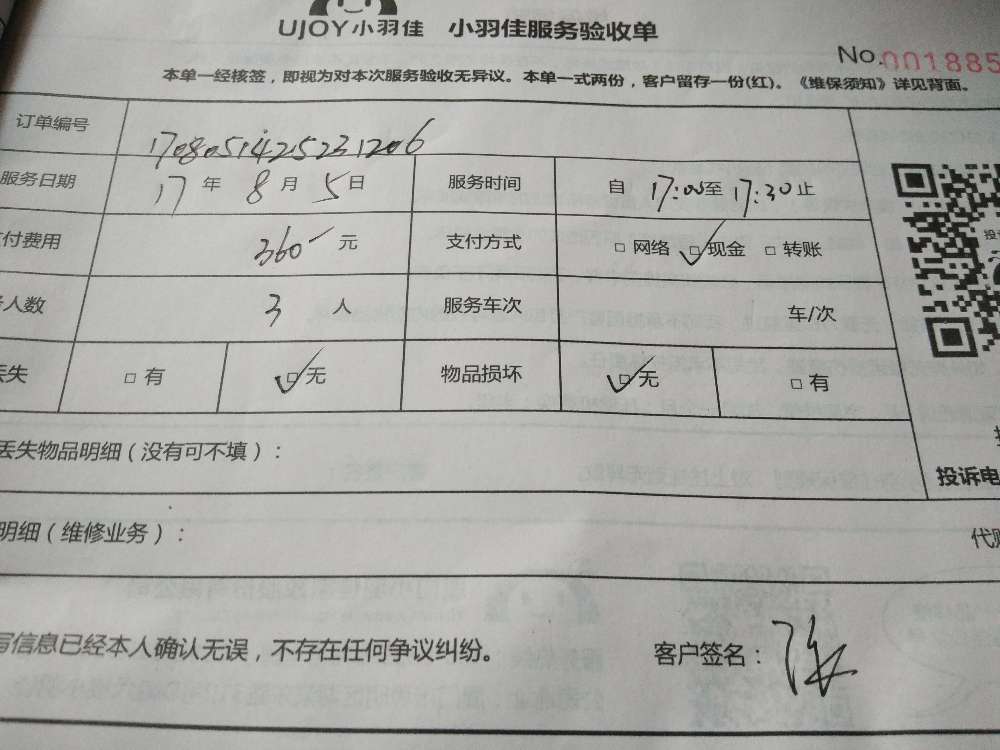 UJOY小羽佳 小羽佳服务验收单
No.001885
本单一经核签，即视为对本次服务验收无异议。本单一式两份，客户留存一份(红)。《维保须知》详见背面。
订单编号 1708051425231206
服务日期 17 年 8 月 5 日 服务时间 自 17:00 至 17:30 止
付费用 360 元 支付方式 □ 网络 □ 现金 □ 转账
人数 3 人 服务车次 车/次
丢失 □ 有 □ 无 物品损坏 □ 无 □ 有
丢失物品明细（没有可不填）：
投诉电
明细（维修业务）：
代购
写信息已经本人确认无误，不存在任何争议纠纷。 客户签名：